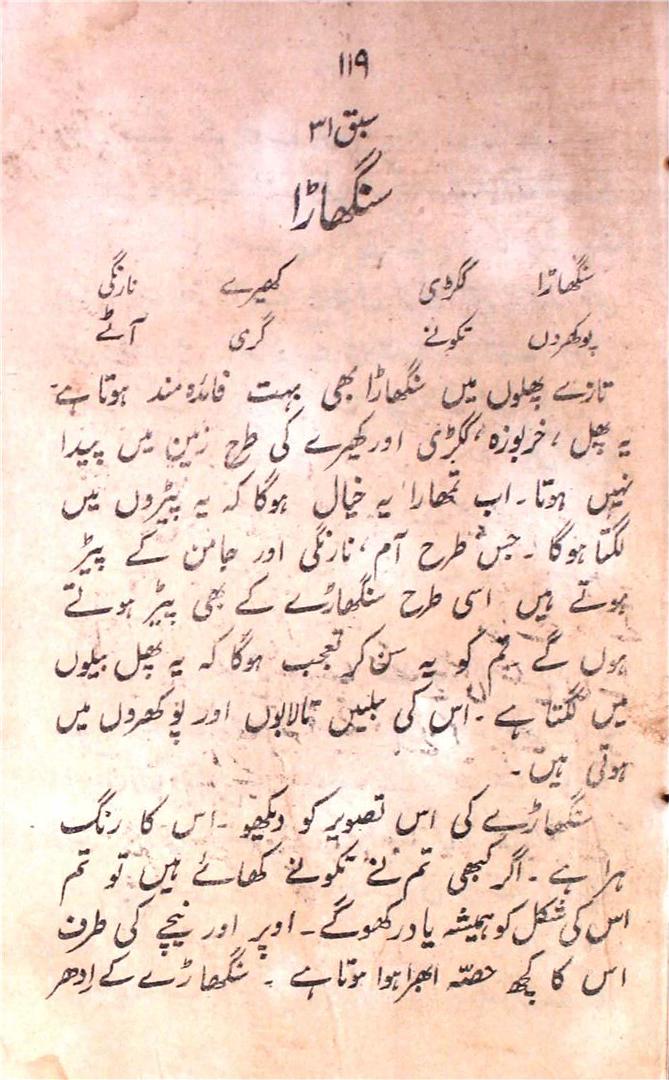 ۱۱۹
سبق ۳۱
سنگھاڑا
سنگھاڑا ککڑی کھیرے نارنگی
پوکھروں تکونے گری آٹے
تازے پھلوں میں سنگھاڑا بھی بہت فائدہ مند ہوتا ہے۔
یہ پھل ، خربوزہ ، ککڑی اور کھیرے کی طرح زمین میں پیدا
نہیں ہوتا ۔ اب تمھارا یہ خیال ہوگا کہ یہ پیڑوں میں
لگتا ہوگا ۔ جس طرح آم ، نارنگی اور جامن کے پیڑ
ہوتے ہیں اسی طرح سنگھاڑے کے بھی پیڑ ہوتے
ہوں گے ۔ تم کو یہ سن کر تعجب ہوگا کہ یہ پھل بیلوں
میں لگتا ہے ۔ اس کی بیلیں تالابوں اور پوکھروں میں
ہوتی ہیں ۔
سنگھاڑے کی اس تصویر کو دیکھو ۔ اس کا رنگ
ہرا ہے ۔ اگر کبھی تم نے تکونے کھائے ہیں تو تم
اس کی شکل کو ہمیشہ یاد رکھو گے ۔ اوپر اور نیچے کی طرف
اس کا کچھ حصّہ ابھرا ہوا ہوتا ہے ۔ سنگھاڑے کے اِدھر